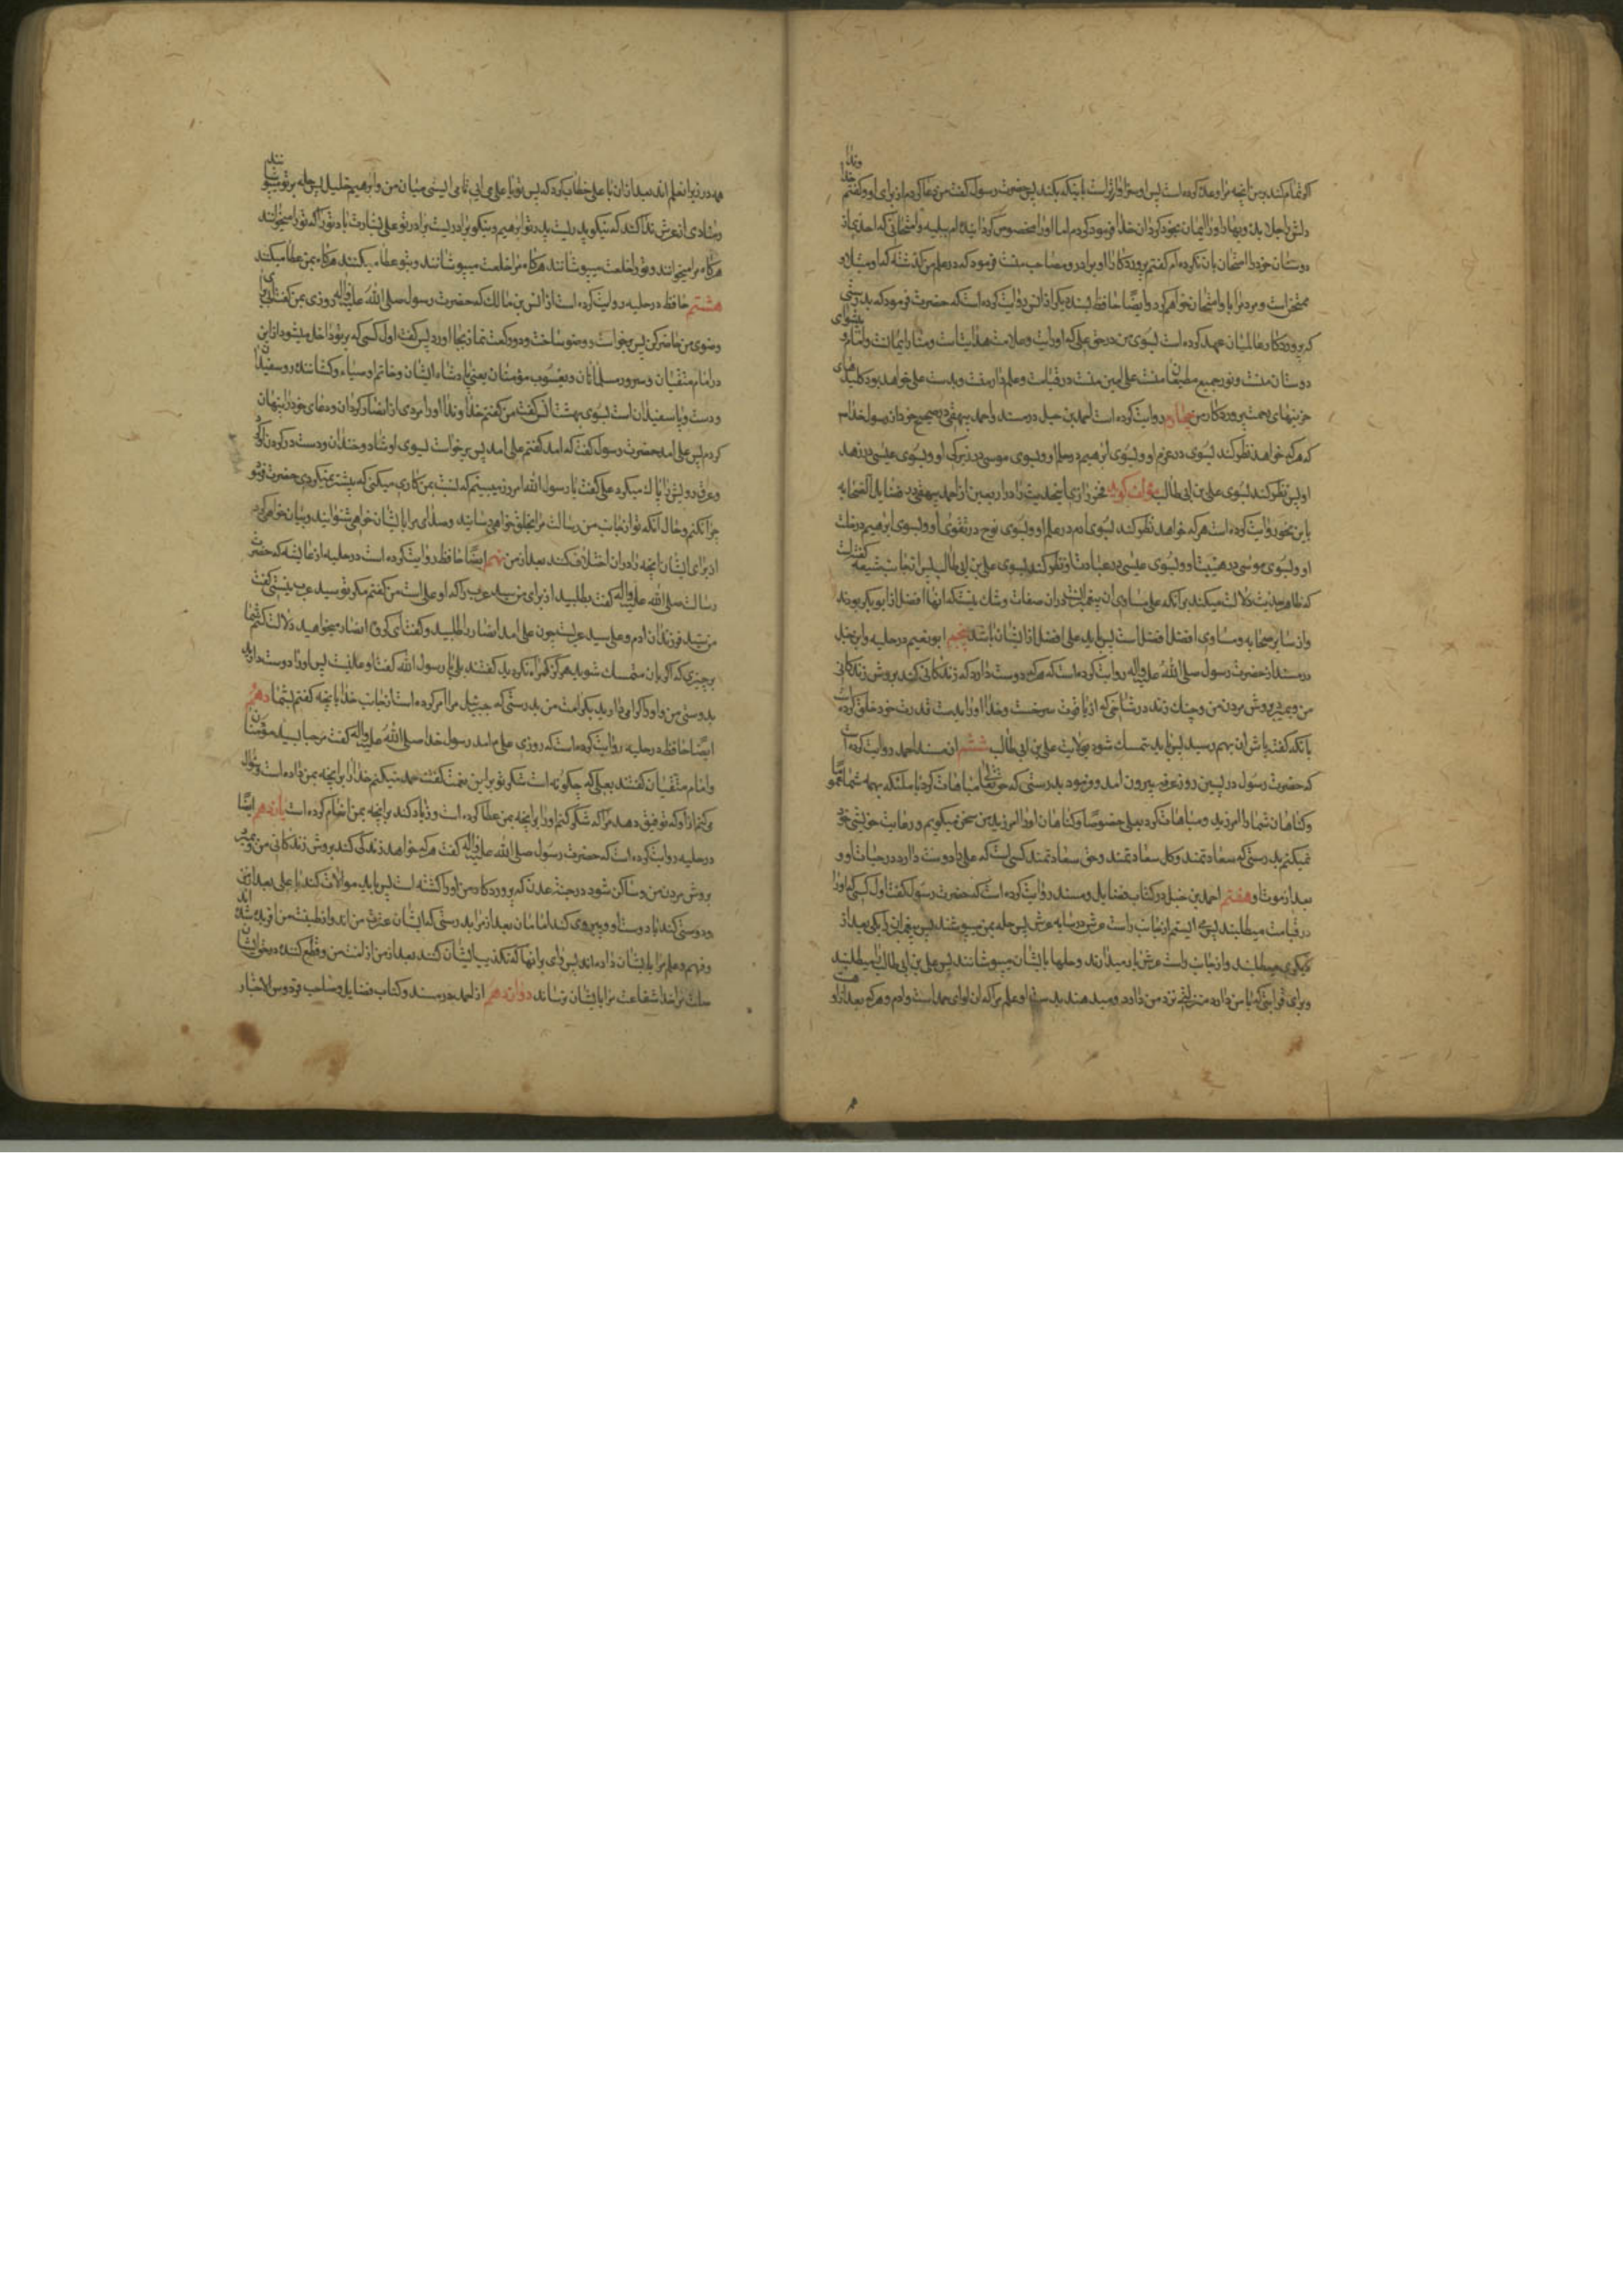 اگر تمام کند در من آنچه مرا وعده کرده است پس او سزاوارتر است باینکه بکند پس حضرت رسول گفت من دعا کردم از برای او و گفتم خداوندا
دلش را جلا بده و بهار او را ایمان بخود گردان خدا فرمود کردم اما او را مخصوص گردانیده‌ام ببلیه و امتحانی که احدی از
دوستان خود را امتحان بان نکرده‌ام گفتم پروردگارا او برادر و مصاحب منست فرمود که در علم من گذشته که او مبتلا و
ممتحن است و مردم را با و امتحان خواهم کرد و ایضا حافظ بسند دیگر از انس روایت کرده است که حضرت فرمود که بدرستی
که پروردگار عالمیان عهد کرده است بسوی من در حق علی که او رایت و علامت هدایتست و منار ایمانست و امام و پیشوای
دوستان منست و نور جمیع مطیعان منست علی امین منست در قیامت و علم‌دار منست و بدست علی خواهد بود کلیدهای
خزینهای رحمت پروردگار من چهارم روایت کرده است احمد بن حنبل در مسند و احمد بیهقی در صحیح خود از رسول خدا ص
که هر که خواهد نظر کند بسوی در عزم او و بسوی ابرهیم در حلم او و بسوی موسی در زیرکی او و بسوی عیسی در زهد
او پس نظر کند بسوی علی بن ابی طالب مؤلف گوید فخر رازی این حدیث را در اربعین از احمد بیهقی در فضایل الصحابه
باین نحو روایت کرده است هر که خواهد نظر کند بسوی ادم در علم او و بسوی نوح در تقوی او و بسوی ابرهیم در خلت
او و بسوی موسی در هیبت او و بسوی عیسی در عبادت او نظر کند بسوی علی بن ابی طالب پس از جانب شیعه گفته است
که ظاهر حدیث دلالت میکند بر آنکه علی مساوی ان پیغمبرانست در ان صفات و شک نیست که انها افضل از ابوبکر بودند
و از سایر صحابه و مساوی افضل افضل است پس باید علی افضل از ایشان باشد پنجم ابو نعیم در حلیه و ابن حنبل
در مسند از حضرت رسول صلی الله علیه و اله روایت کرده است که هر که دوست دارد که زندگانی کند بروش زندگانی
من و بمیرد بروش مردن من و چنک زند در شاخی که از یاقوت سرخست و خدا او را بدست قدرت خود خلق کرده است
بانکه گفت باش ان بهم رسید پس باید متمسک شود بولایت علی بن ابی طالب ششم از مسند احمد روایت کرده است
که حضرت رسول در پسین روز عرفه بیرون امد و فرمود بدرستی که حق تعالی مباهات کرد با ملئکه بهمه شما عموما
و گناهان شما را امرزید و مباهات کرد بعلی خصوصا و گناهان او را امرزید من سخن میگویم و رعایت خویشی خود
نمیکنم بدرستی که سعادتمند و کل سعادتمند و حق سعادتمند کسی است که علی را دوست دارد در حیات او و
بعد از موت او هفتم احمد بن حنبل در کتاب فضایل و مسند روایت کرده است که حضرت رسول گفت اول کسی که او را
در قیامت میطلبند پس می ایستم از جانب راست عرش در سایه عرش پس حله بمن میپوشند پس پیغمبران را یکی بعد از
دیگری میطلبند و از جانب راست عرش باز میدارند و حلها بایشان میپوشانند پس علی بن ابی طالب را میطلبند
و برای قرابتی که با من دارد و منزلتی که نزد من دارد و میدهند بدست او علم مرا که ان لوای حمد است و ادم و هر که بعد از او هست
همه در زیر ان علم اند بعد از ان با علی خطاب کرد که پس تو یا علی می ایی تا می ایستی میان من و ابرهیم خلیل پس حله بر تو بپوشانند
و منادی از عرش ندا کند که نیکو پدریست پدر تو ابرهیم و نیکو برادریست برادر تو علی بشارت باد تو را که تو را میخوانند
هرگاه مرا میخوانند و تو را خلعت میپوشانند هرگاه مرا خلعت میپوشانند و بتو عطا میکنند هرگاه بمن عطا میکنند
هشتم حافظ در حلیه روایت کرده است از انس بن مالک که حضرت رسول صلی الله علیه و اله روزی بمن گفت اب
وضوی من حاضر کن پس برخواست و وضو ساخت و دو رکعت نماز بجا اورد پس گفت اول کسی که بر تو داخل میشود از این
در امام متقیان و سرور مسلمانان و یعسوب مؤمنان یعنی پادشاه ایشان و خاتم اوصیاء و کشاننده رو سفیدان
و دست و پا سفیدان است بسوی بهشت انس گفت من گفتم خداوندا او را مردی از انصار گردان و دعای خود را پنهان
کردم پس علی امد حضرت رسول گفت که امد گفتم علی امد پس برخواست بسوی او شاد و خندان و دست در گردن او کرد
و عرق رویش را پاک میکرد علی گفت یا رسول الله امروز میبینم که نسبت بمن کاری میکنی که پیشتر نمیکردی حضرت فرمود
چرا نکنم و حال آنکه تو از جانب من رسالت مرا بخلق خواهی رسانید و صدای مرا بایشان خواهی شنوانید و بیان خواهی کرد
از برای ایشان آنچه را در ان اختلاف کنند بعد از من نهم ایضا حافظ روایت کرده است در حلیه از عایشه که حضرت
رسالت صلی الله علیه و اله گفت بطلبید از برای من سید عرب را که او علی است من گفتم مگر تو سید عرب نیستی گفت
من سید فرزندان ادم و علی سید عربست چون علی امد انصار را طلبید و گفت ای گروه انصار میخواهید دلالت کنم شما را
بر چیزی که اگر بان متمسک شوید هرگز گمراه نگردید گفتند بلی یا رسول الله گفت او علیست پس او را دوست دارید
بدوستی من و او را گرامی دارید بکرامت من بدرستی که جبرئیل مرا امر کرده است از جانب خدا بآنچه گفتم بشما دهم
ایضا حافظ در حلیه روایت کرده است که روزی علی ع امد رسول خدا صلی الله علیه و اله گفت مرحبا بسید مؤمنان
و امام متقیان گفتند بعلی که چگونه است شکر تو بر این نعمت گفت حمد میکنم خدا را بر انچه بمن داده است و سؤال
میکنم از او که توفیق دهد مرا که شکر کنم او را بر انچه بمن عطا کرده است و زیاد کند بر انچه بمن انعام کرده است یازدهم ایضا
در حلیه روایت کرده است که حضرت رسول صلی الله علیه و اله گفت هر که خواهد زندگی کند بروش زندگانی من و بمیرد
بروش مردن من و ساکن شود در جنة عدن که پروردگار من او را کشته است پس باید موالات کند با علی بعد از من
و دوستی کند با دوست او و پیروی کند امامان بعد از مرا بدرستی که ایشان عترت من اند و از طینت من افریده شده اند
و فهم و علم مرا بایشان داده‌اند پس وای بر انها که تکذیب ایشان کنند بعد از من از امت من و قطع کننده در حق ایشان
صلت مرا خدا شفاعت مرا بایشان نرساند دوازدهم از احمد در مسند و کتاب فضایل و صاحب فردوس الاخبار